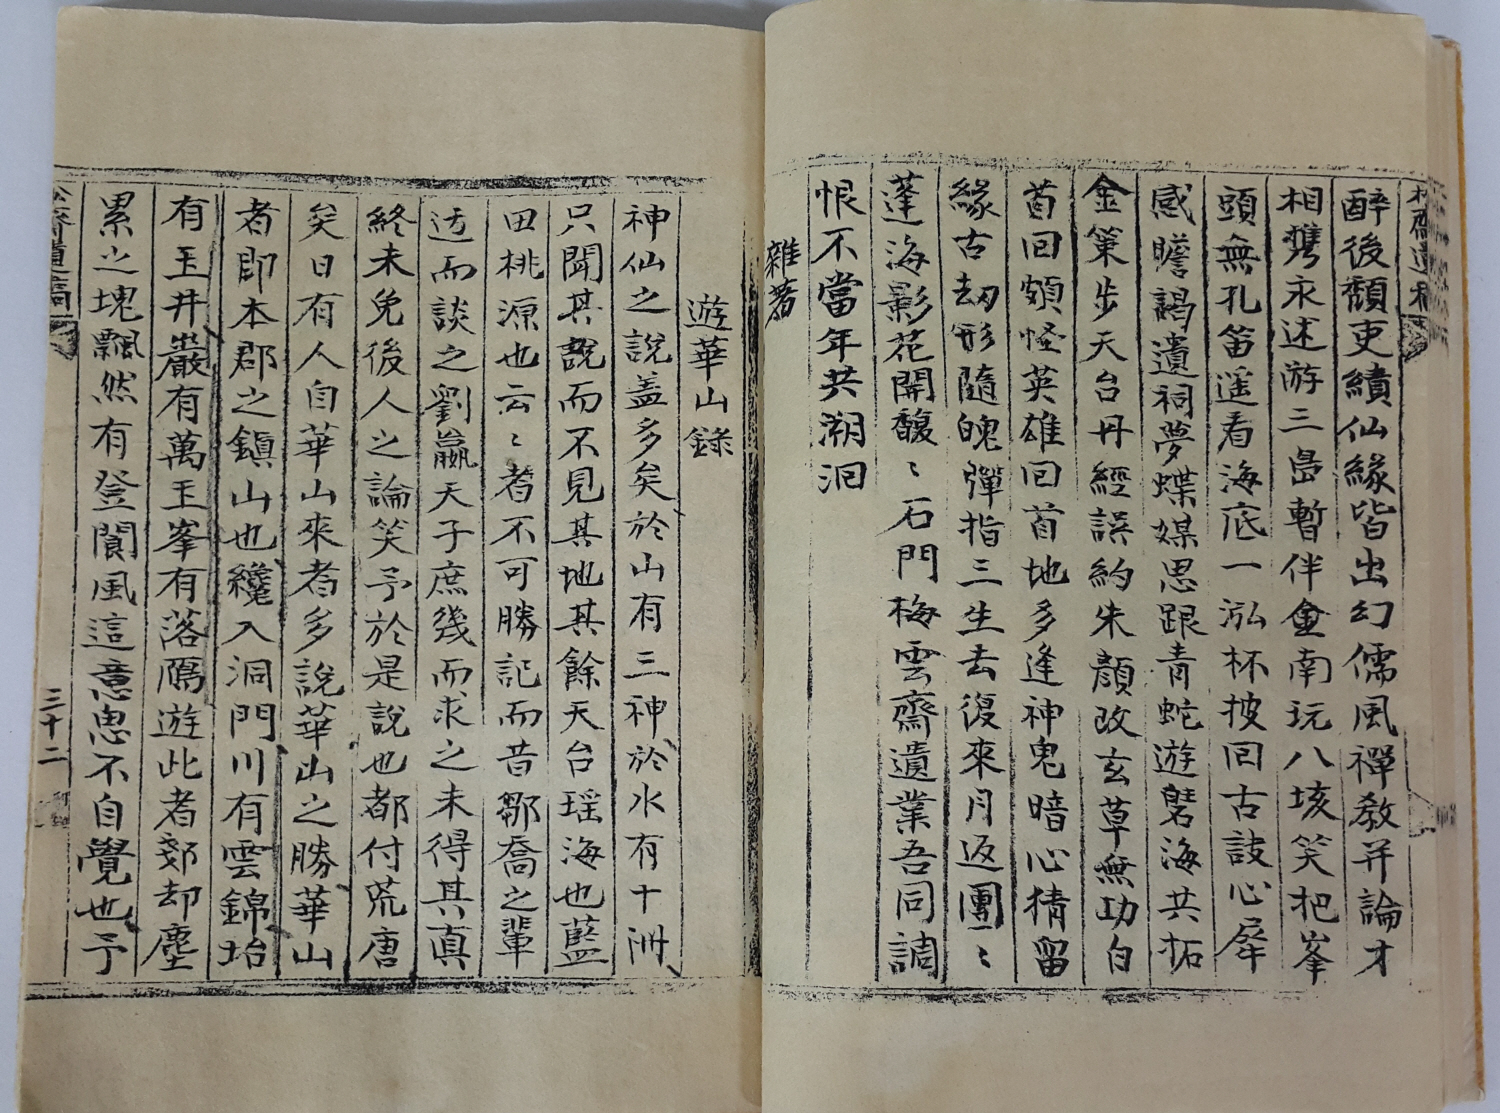 醉後頹吏續仙緣皆出幻儒風禪教幷論才
相携永述游三島暫伴金南玩八垓笑把峯
頭無孔笛遥看海底一泓杯披回古詖心犀
感瞻謁遺祠夢蝶媒思跟青蛇遊碧海共拓
金策步天台丹經誤約朱顔改玄草無功白
首回頻怪英雄回首地多逢神鬼暗心猜留
緣古刼形隨魄彈指三生去復來月返團〻
蓬海影花開馥〻石門梅雲齋遺業吾同調
恨不當年共溯洄
雜著
遊華山錄
神仙之說盖多矣於山有三神於水有十洲
只聞其說而不見其地其餘天台瑶海也藍
田桃源也云〻者不可勝記而昔鄒喬之輩
迃而談之劉嬴天子庶幾而求之未得其眞
終未免後人之論笑予於是說也都付荒唐
矣日有人自華山來者多說華山之勝華山
者即本郡之鎭山也纔入洞門川有雲錦坮
有玉井巖有萬玉峯有落鴈遊此者郊却塵
累之塊飄然有登閬風這意思不自覺也予
三十二